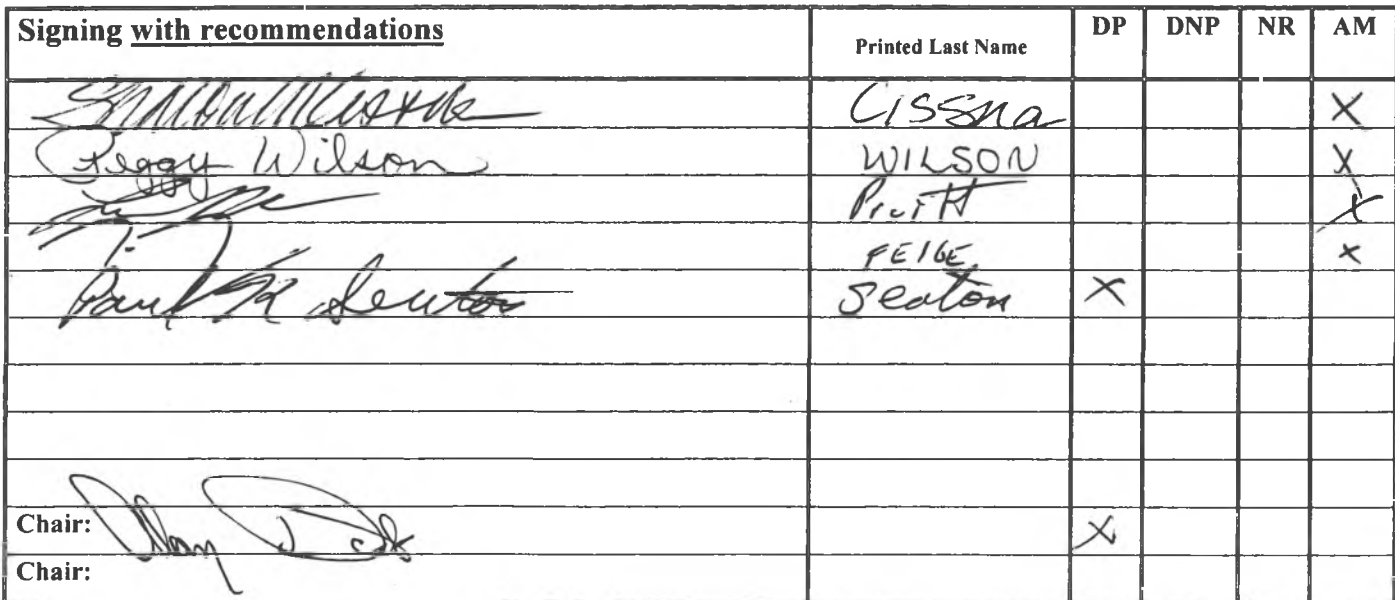 Signing with recommendations Printed Last Name DP DNP NR AM
Cissna X
Peggy Wilson WILSON X
Pruitt X
FEIGE X
Paul K Seaton Seaton X
Chair: X
Chair: